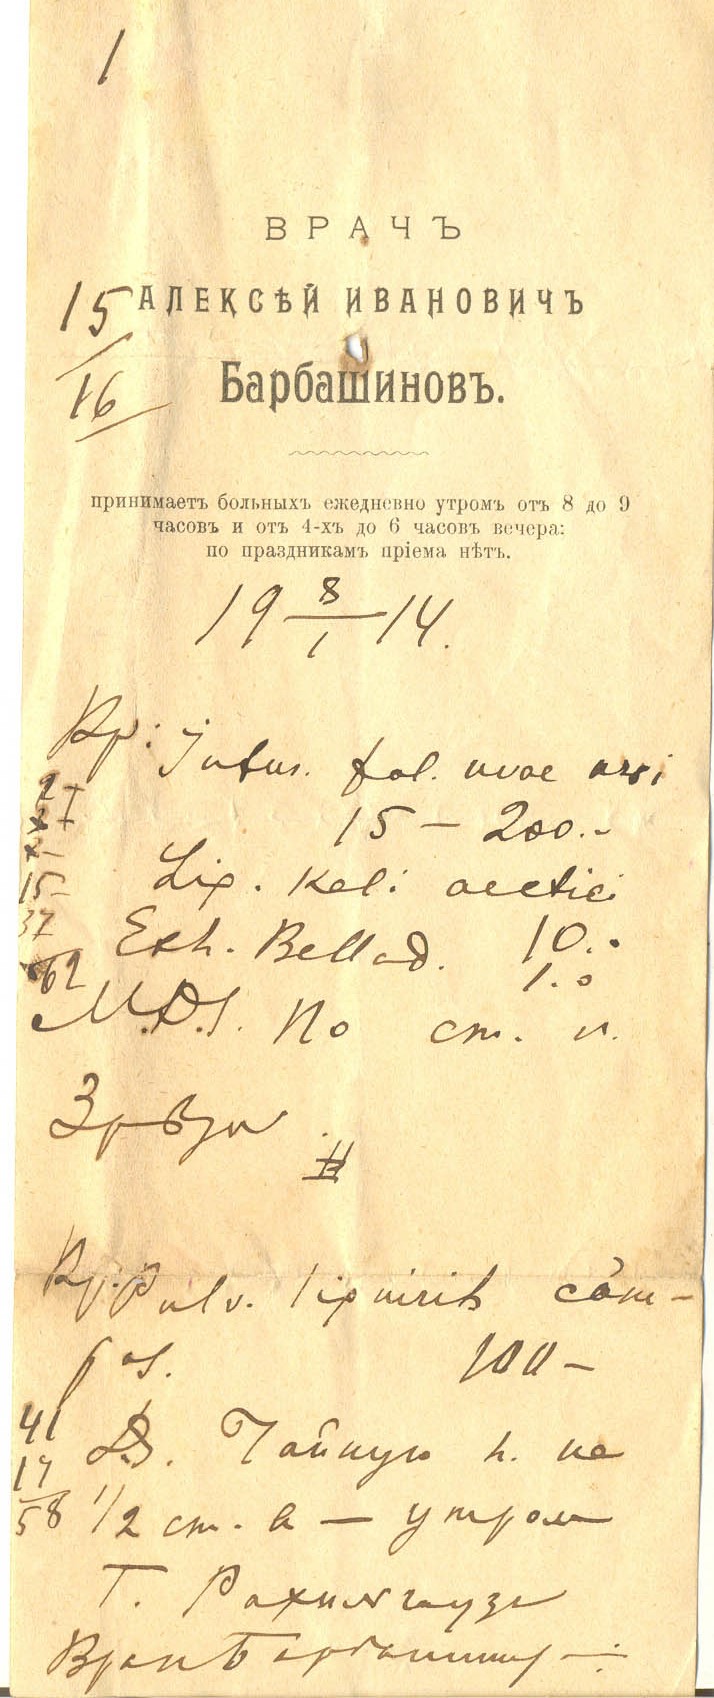 1
ВРАЧЪ
АЛЕКСѢЙ ИВАНОВИЧЪ
15
16
Барбашиновъ.
принимаетъ больныхъ ежедневно утромъ отъ 8 до 9
часовъ и отъ 4-хъ до 6 часовъ вечера:
по праздникамъ пріема нѣтъ.
19 8/1 14.
Rp: Infus. fol. uvae ursi
15 — 200.-
Liq. Kali acetici
15-
37
62
Extr. Bellad. 10.0
1.0
M.D.S. По ст. л.
II
Rp. Pulv. liquirit. com-
pos. 100-
41
17
58
DS. Чайную л. на
1/2 ст. в — утром
Г.
Врач Барбашинов